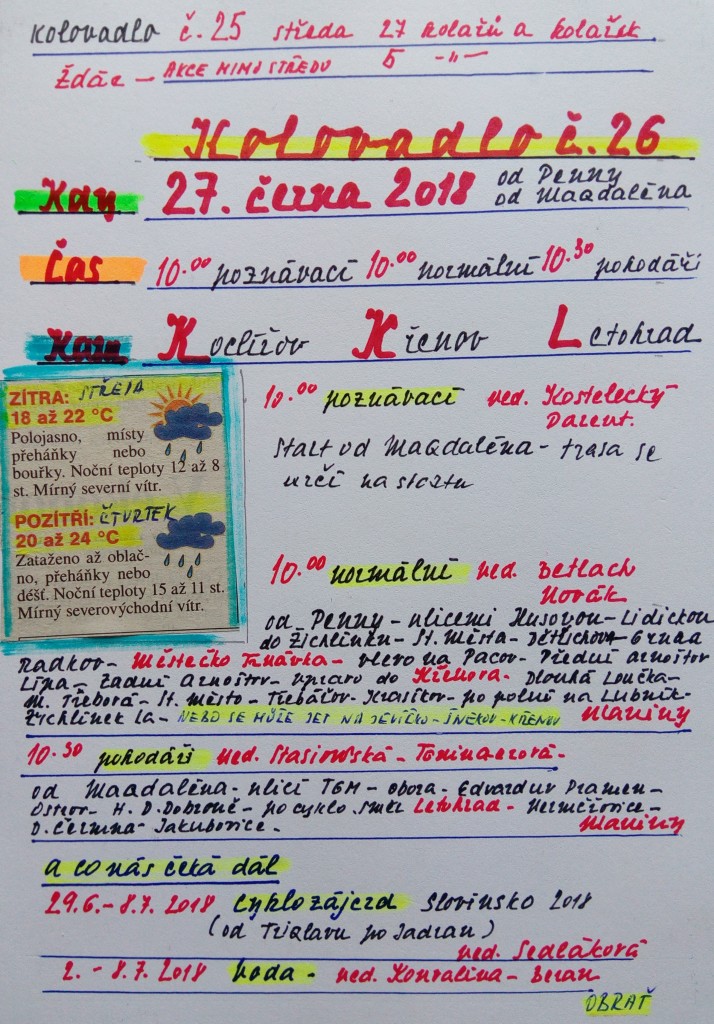 Kolovadlo č. 25 středa 27 kolařů a kolařek
Ždár - AKCE MIMO STŘEDU 5 -"-
Kolovadlo č. 26
Kdy 27. černa 2018 od Penny
od Magdaléna
Čas 10.00 poznávací 10.00 normální 10.30 pohodáři
Kam Koclířov Křenov Letohrad
ZÍTRA: STŘEDA
18 až 22 °C
Polojasno, místy
přeháňky nebo
bouřky. Noční teploty 12 až 8
st. Mírný severní vítr.
POZÍTŘÍ: ČTVRTEK
20 až 24 °C
Zataženo až oblač-
no, přeháňky nebo
déšť. Noční teploty 15 až 11 st.
Mírný severovýchodní vítr.
10.00 poznávací ved. Kostelecký
Darent.
Start od Magdaléna - trasa se
určí na startu
10.00 normální ved. Betlach
Novák
od Penny - ulicemi Husovou - Lidickou
do Žichlínku - St. Města - Dětřichov
Radkov - Městečko Trnávka - vlevo na Pacov - Přední Arnoštov
Lípa - Zadní Arnoštov - vpravo do Křenova. Dlouhá Loučka -
M. Třebová - St. město - Třebářov - Krasíkov - po polní na Lubník -
Žichlínek La - NEBO SE MŮŽE JET NA JEVÍČKO - ŠNEKOV - KŘENOV Maziny
10.30 pohodáři ved. Stasiowská - Tomingerová -
od Magdaléna - ulicí TGM - obora - Edvardův Pramen -
Ostrov - H. D. Dobrouč - po cyklo směr Letohrad - Heřmčřovice -
D. Čermná - Jakubovice - Maziny
a co nás čeká dál
29.6. - 8.7. 2018 Cyklozájezd Slovinsko 2018
(od Triglavu po Jadran)
ved. Sedláková
2. - 8.7. 2018 voda - ved. Konvalina - Beran
OBRAŤ